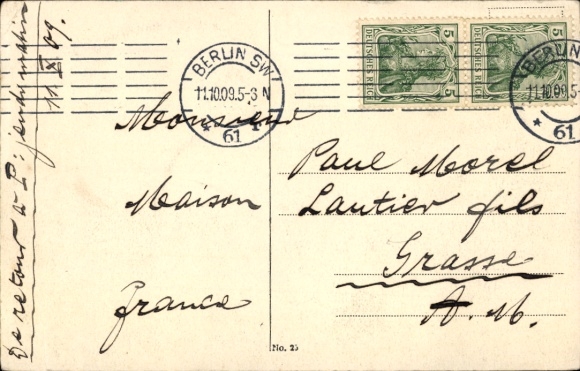 De retour à P: jeudi matin
11 X 09.
DEUTSCHES REICH
5
5
DEUTSCHES REICH
5
BERLIN SW
11.10.09.5-3 N
* 61 *
BERLIN
11.10.09.5-
* 61
Monsieur
Paul Morel
Maison Lautier fils
Grasse
France A. M.
No. 25